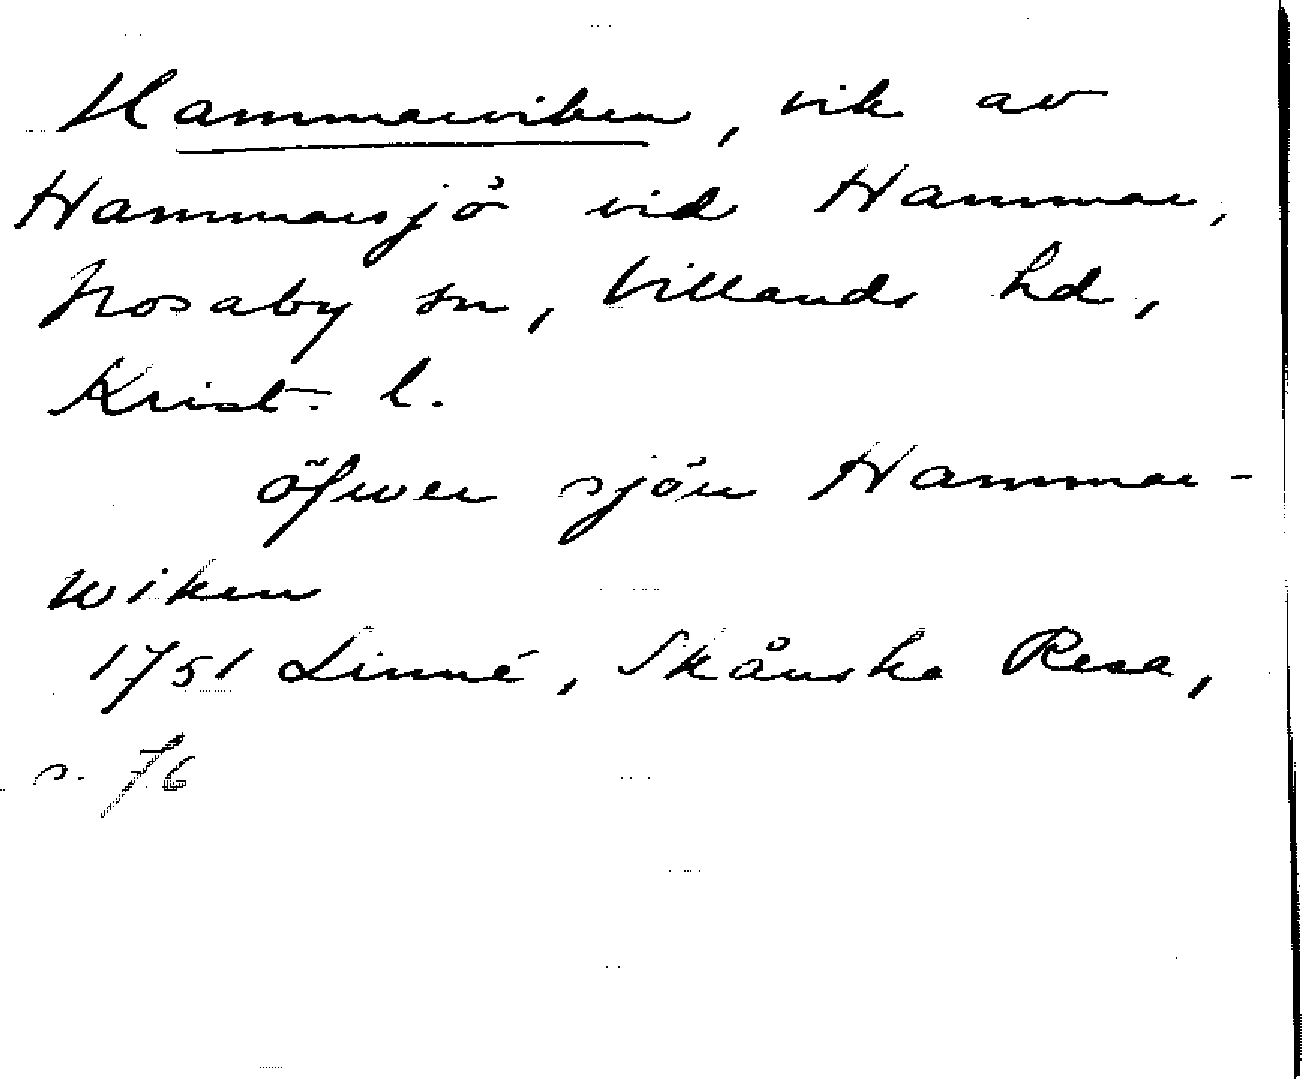 Hammarviken, vik av
Hammarsjö vid Hammar,
Nosaby sn, Villands hd,
Krist. l.
öfwer sjön Hammar-
wiken
1751 Linné, Skånska Resa,
s. 76